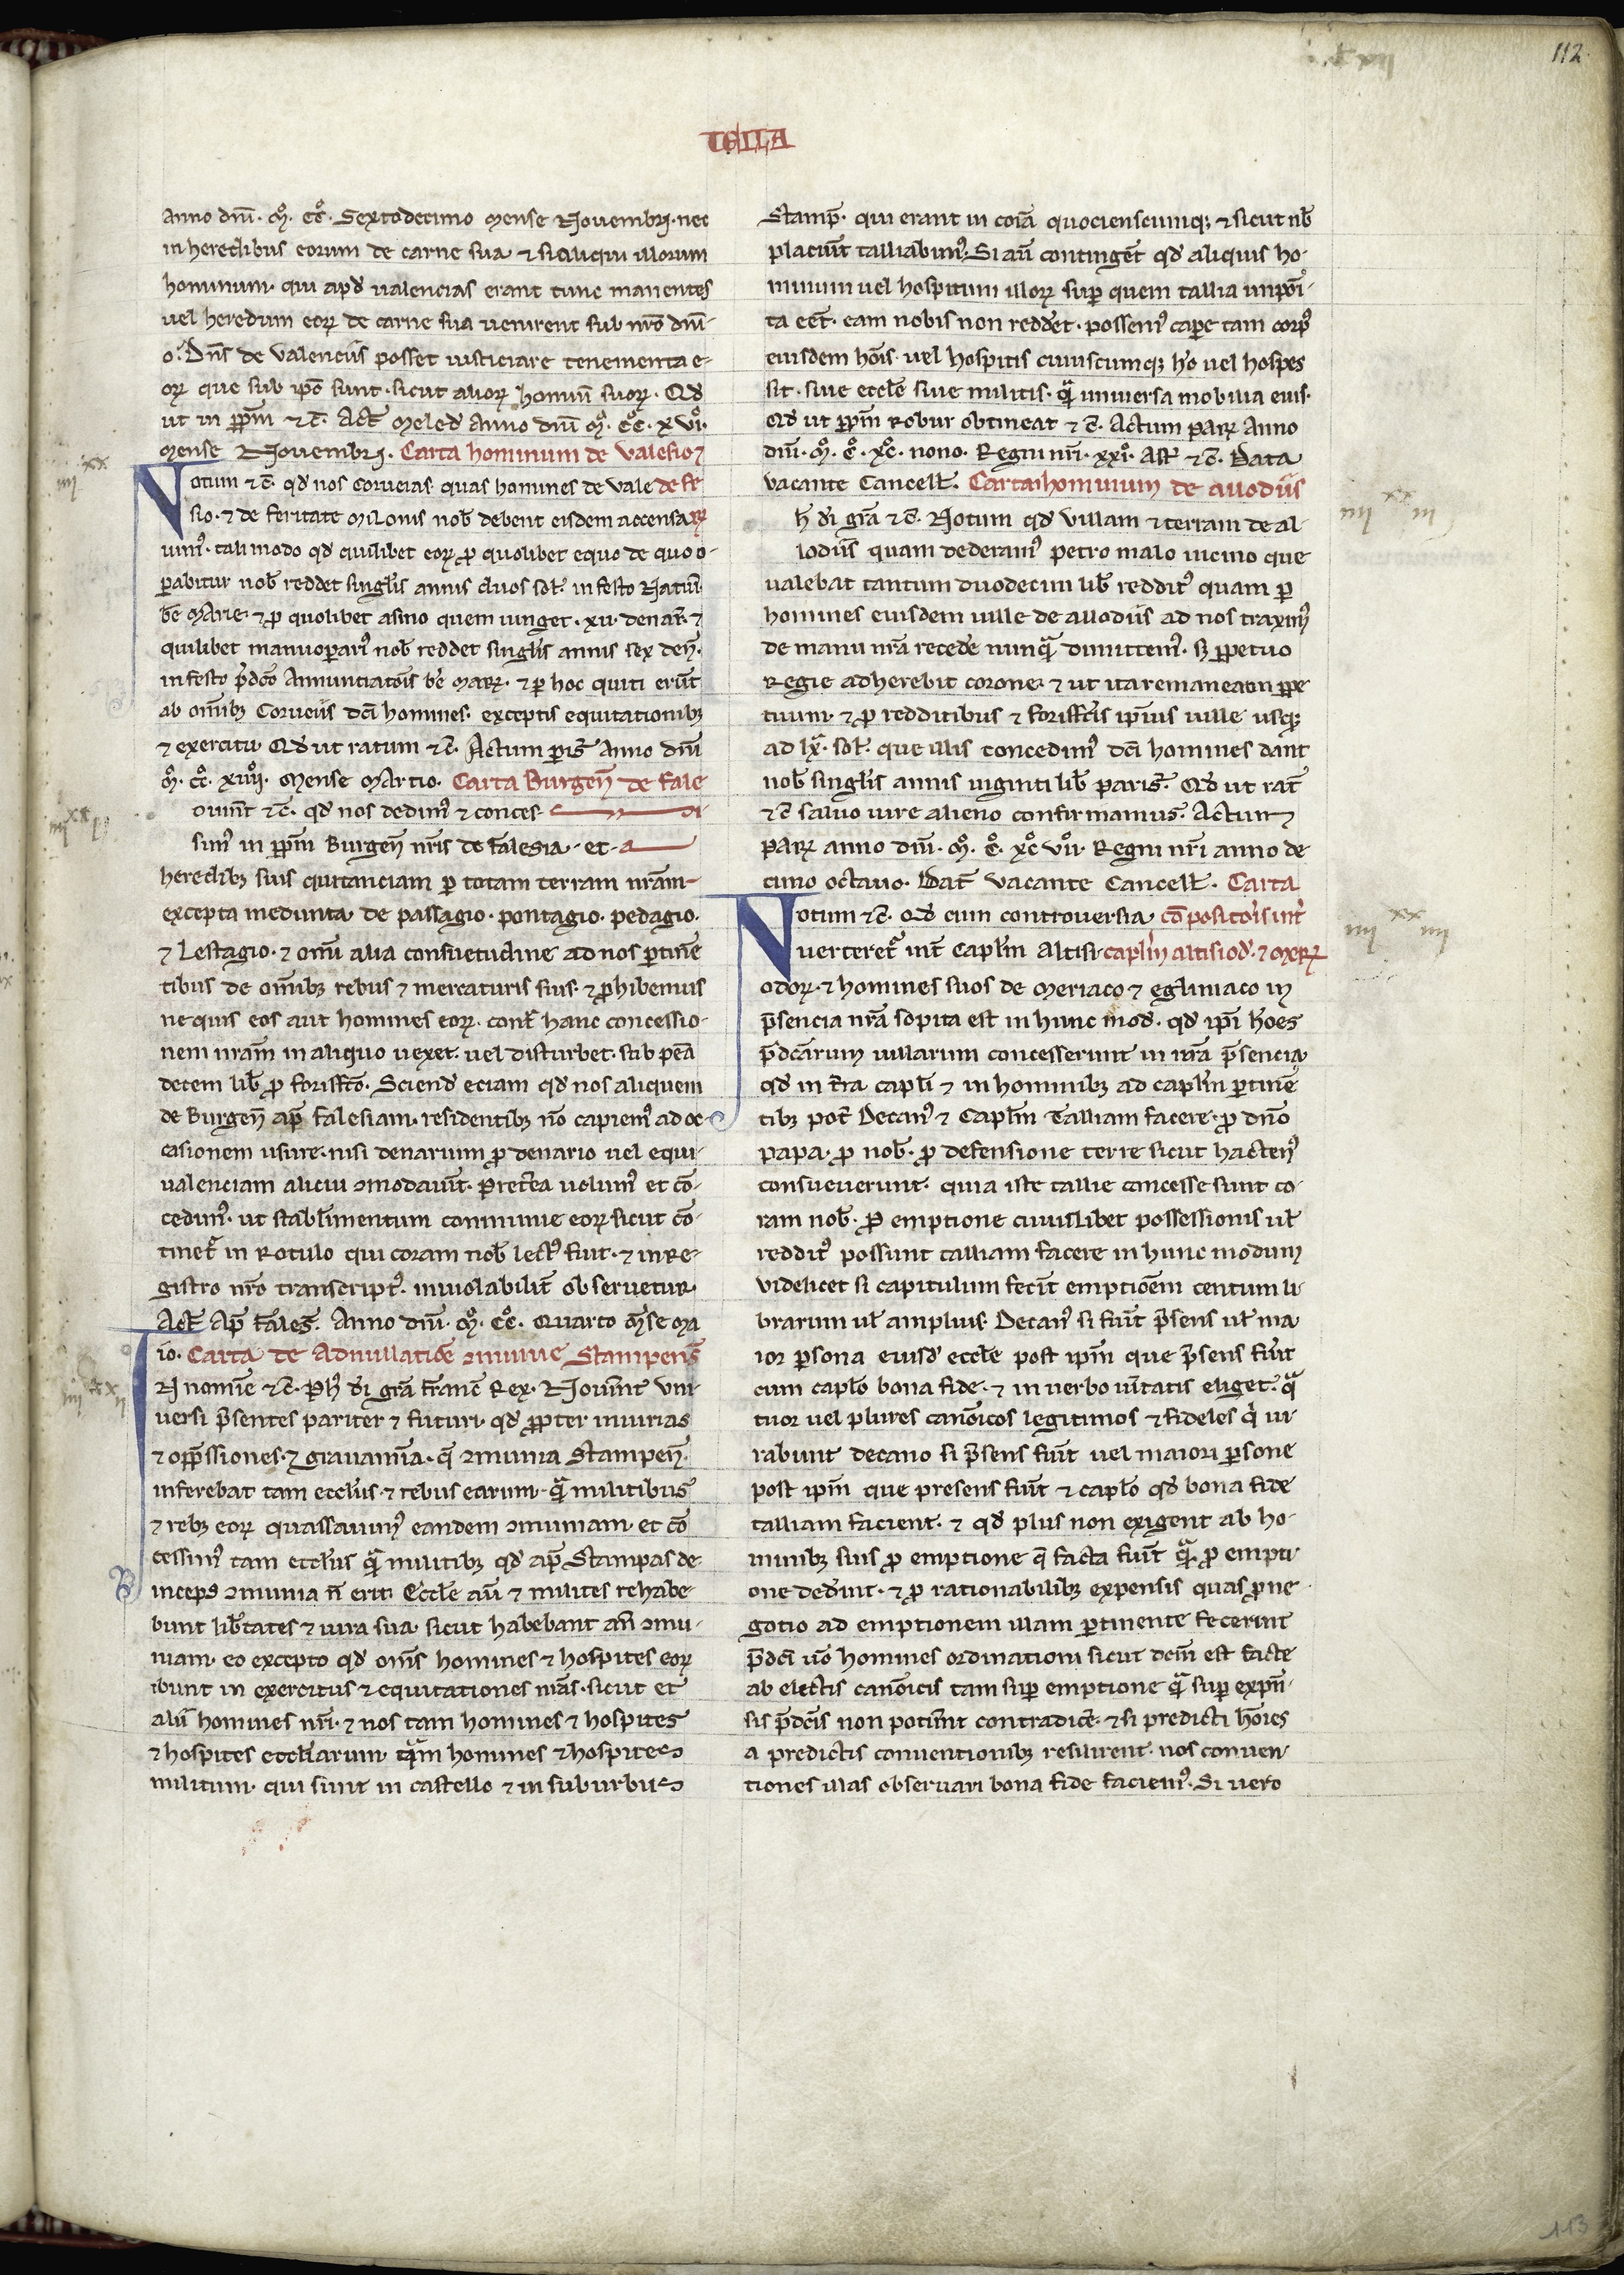 112
TCIIA
anno dñi. mͦ. ccͦ. Sextodecimo mense Nouembri. nec
in heredibus eorum de carne sua ⁊ si aliqui illorum
hominum. qui apd̕ ualencias erant tunc manentes
uel heredum eoꝝ de carne sua uenirent sub nr̃o dñi-
o. Dñs de Valenciis posset iusticiare tenementa e-
oꝝ que sub ip̃o sunt. sicut alioꝝ hominũ suoꝝ. Qd̕
ut in ꝑpm̃ ⁊c̃. Act̃ Meled̕ anno dñi mͦ. ccͦ. xviͦ.
mense Nouembri. Carta hominum de Valesio ⁊
Notum ⁊c̃. qd̕ nos Corueias quas homines de Vale de fe
sio. ⁊ de feritate Milonis nob̃ debent eisdem accensa
uimꝰ. tali modo qd̕ quilibet eoꝝ ꝓ quolibet equo de quo o-
ꝑabitur nob̃ reddet singlis̃ annis duos sol̃. in festo Natiui.
be Marie. ⁊ ꝓ quolibet asino quem iunget. xii. denar̃. ⁊
quilibet manuoꝑariꝰ nob̃ reddet singlis̃ annis sex den̕.
in festo p̃dc̃o Annunciatõis be Maꝝ. ⁊ ꝑ hoc quiti erũt
ab om̃ibꝫ Corueiis dc̃i homines. exceptis equitationibꝫ
⁊ exercitu. Qd̕ ut ratum ⁊c̃. Actum paris̃ Anno dñi
mͦ. ccͦ. xiiiiͦ. Mense Martio. Carta Burgen̕ de Fale
Nouint ⁊c̃. qd̕ nos dedimꝰ ⁊ conces-
simꝰ in ꝑpm̃ Burgen̕ nr̃is de Falesia. et
heredibꝫ suis quitanciam ꝑ totam terram nr̃am-
excepta medunta de passagio. pontagio. pedagio.
⁊ Lestagio. ⁊ om̃i alia consuetudine ad nos ꝑtinẽ
tibus de om̃ibꝫ rebus ⁊ mercaturis suis. ⁊ ꝓhibemus
ne quis eos aut homines eoꝝ. cont̃ hanc concessio-
nem nr̃am in aliquo uexet. uel disturbet. sub pena
decem lib̃ ꝓ forisfc̃o. Sciend̕ eciam qd̕ nos aliquem
de Burgen̕ ap̃ Falesiam. residentibꝫ nõ capiemꝰ ad oc
casionem usure. nisi denarium ꝓ denario uel equi-
ualenciam alicui ꝯmodauit̃. Pret̃ea uolumꝰ et cõ-
cedimꝰ. ut stablimentum communie eoꝝ sicut cõ-
tinet̃ in Rotulo qui coram nob̃ lectꝰ fuit. ⁊ in Re-
gistro nr̃o transcriptꝰ. inuiolabilit̃ obseruetur
Act̃ Ap̃ Fales̃. Anno dñi. mͦ. ccͦ. Quarto m̃se ma
io. Carta de Adnullatiõe ꝯmunie Stampens̃
IN nomiẽ ⁊c̃. Ph̃ di gr̃a franc̃ Rex. Nouint̃ vni-
uersi p̃sentes pariter ⁊ futuri. qd̕ ꝓpter iniurias
⁊ opp̃ssiones. ⁊ grauamĩa. q̃ ꝯmunia Stampen̕.
inferebat tam eccliis̃. ⁊ rebus earum. qͣ militibus
⁊ rebꝫ eoꝝ quassauimꝰ eandem ꝯmuniam. et cõ
cessimꝰ tam eccliis̃ qͣ militibꝫ qd̕ ap̃ Stampas de
inceps ꝯmunia ñ erit. Eccle aũ ⁊ milites rehabe
bunt lib̃tates ⁊ iura sua. sicut habebant an̕ ꝯmu-
niam. eo excepto qd̕ om̃s homines ⁊ hospites eoꝝ
ibunt in exercitus ⁊ equitationes nr̃as. sicut et
alii homines nr̃i. ⁊ nos tam homines ⁊ hospites
⁊ hospites ecclesiarum. qͣm homines ⁊ hospites
militum. qui sunt in castello ⁊ in suburbiis
Stamp̃. qui erant in coĩa quocienscumqꝫ ⁊ sicut nb̃
placuit̃ talliabimꝰ. Si aũ contingẽt qd̕ aliquis ho-
minum uel hospitum illoꝝ suꝑ quem tallia impõi-
ta eet̃. eam nobis non reddet̃. possemꝰ caꝑe tam corpꝰ
eiusdem hõis. uel hospitis cuiuscumqꝫ ho uel hospes
sit. siue eccle siue militis. qͣ uniuersa mobilia eius.
Qd̕ ut ꝑpm̃ Robur obtineat ⁊c̃. Actum Paꝝ Anno
dñi. mͦ. cͦ. xcͦ. nono. Regni nr̃i. xxiͦ. Ast̃ ⁊c̃. Data
Vacante Cancell̃. Carta hominum de Allodiis
Ph̃ di gr̃a ⁊c̃. Notum qd̕ villam ⁊ terram de al-
lodiis quam dederamꝰ petro malo uicino que
ualebat tantum duodecim lib̃ redditꝰ quam ꝑ
homines eiusdem uille de allodiis ad nos traximꝰ
de manu nr̃a recede nunqͣ dimittemꝰ. sꝫ ꝑpetuo
Regie adherebit corone. ⁊ ut ita remaneat in ꝑpe
tuum. ⁊ ꝓ redditibus ⁊ forisfc̃is ipsius uille usqꝫ
ad lxͣ. sol̃. que illis concedimꝰ dc̃i homines dant
nob̃ singlis̃ annis uiginti lib̃ paris̃. Qd̕ ut rat̃
⁊c̃ saluo iure alieno confirmamus. Actum
Paꝝ anno dñi. mͦ. cͦ. xcͦ viiͦ. Regni nr̃i anno de
cimo octauo. Dat̃ vacante Cancell̃. Carta
Notum ⁊c̃. Qd̕ cum controuersia cõpositõis int̃
uerteret̃ int̃ Caplm̃ Altisi- caplm̃ altisiod̕. ⁊ Meꝝ
odoꝝ. ⁊ homines suos de Meriaco ⁊ egliniaco in
p̃sencia nr̃a sopita est in hunc mod̕. qd̕ ip̃i hoẽs
p̃dc̃arum uillarum concesserunt in nr̃a p̃sencia
qd̕ in t̃ra capli̕ ⁊ in hominibꝫ ad caplm̃ ꝑtinẽ
tibꝫ pot̃ Decanꝰ ⁊ Caplm̃ Talliam facere. ꝓ dño
papa. ꝓ nob̃. ꝓ defensione terre sicut hactenꝰ
consueuerunt. quia iste tallie concesse sunt co-
ram nob̃. Pro emptione cuiuslibet possessionis ul̃
redditꝰ possunt talliam facere in hunc modum
Videlicet si capitulum fecit̃ emptiõem centum li
brarum ul̃ amplius. Decanꝰ si fuit̃ p̃sens ul̃ ma
ior ꝑsona eiusd̕ eccle post ip̃m que p̃sens fuit̃
cum caplo̕ bona fide. ⁊ in uerbo uitatis eliget. qͣ
tuor uel plures canoĩcos legitimos ⁊ fideles qͥ iu-
rabunt decano si p̃sens fuit̃ uel maiori ꝑsone
post ip̃m que presens fuit̃ ⁊ caplo̕ qd̕ bona fide
talliam facient. ⁊ qd̕ plus non exigent ab ho-
minibꝫ suis ꝓ emptione q̃ facta fuit̃ qͣ ꝓ empti-
one dederint. ⁊ ꝓ rationabilibꝫ expensis quas ꝓ ne-
gotio ad emptionem illam ꝑtinente fecerint
p̃dc̃i uo homines ordinationi sicut dcm̃ est facte
ab electis canoĩcis tam suꝑ emptione qͣ suꝑ expen̕-
sis p̃dc̃is non potint̃ contradice. ⁊ si predicti hoies
a predictis conuentionibꝫ resilirent. nos conuen-
tiones illas obseruari bona fide faciemꝰ. Si uero
113